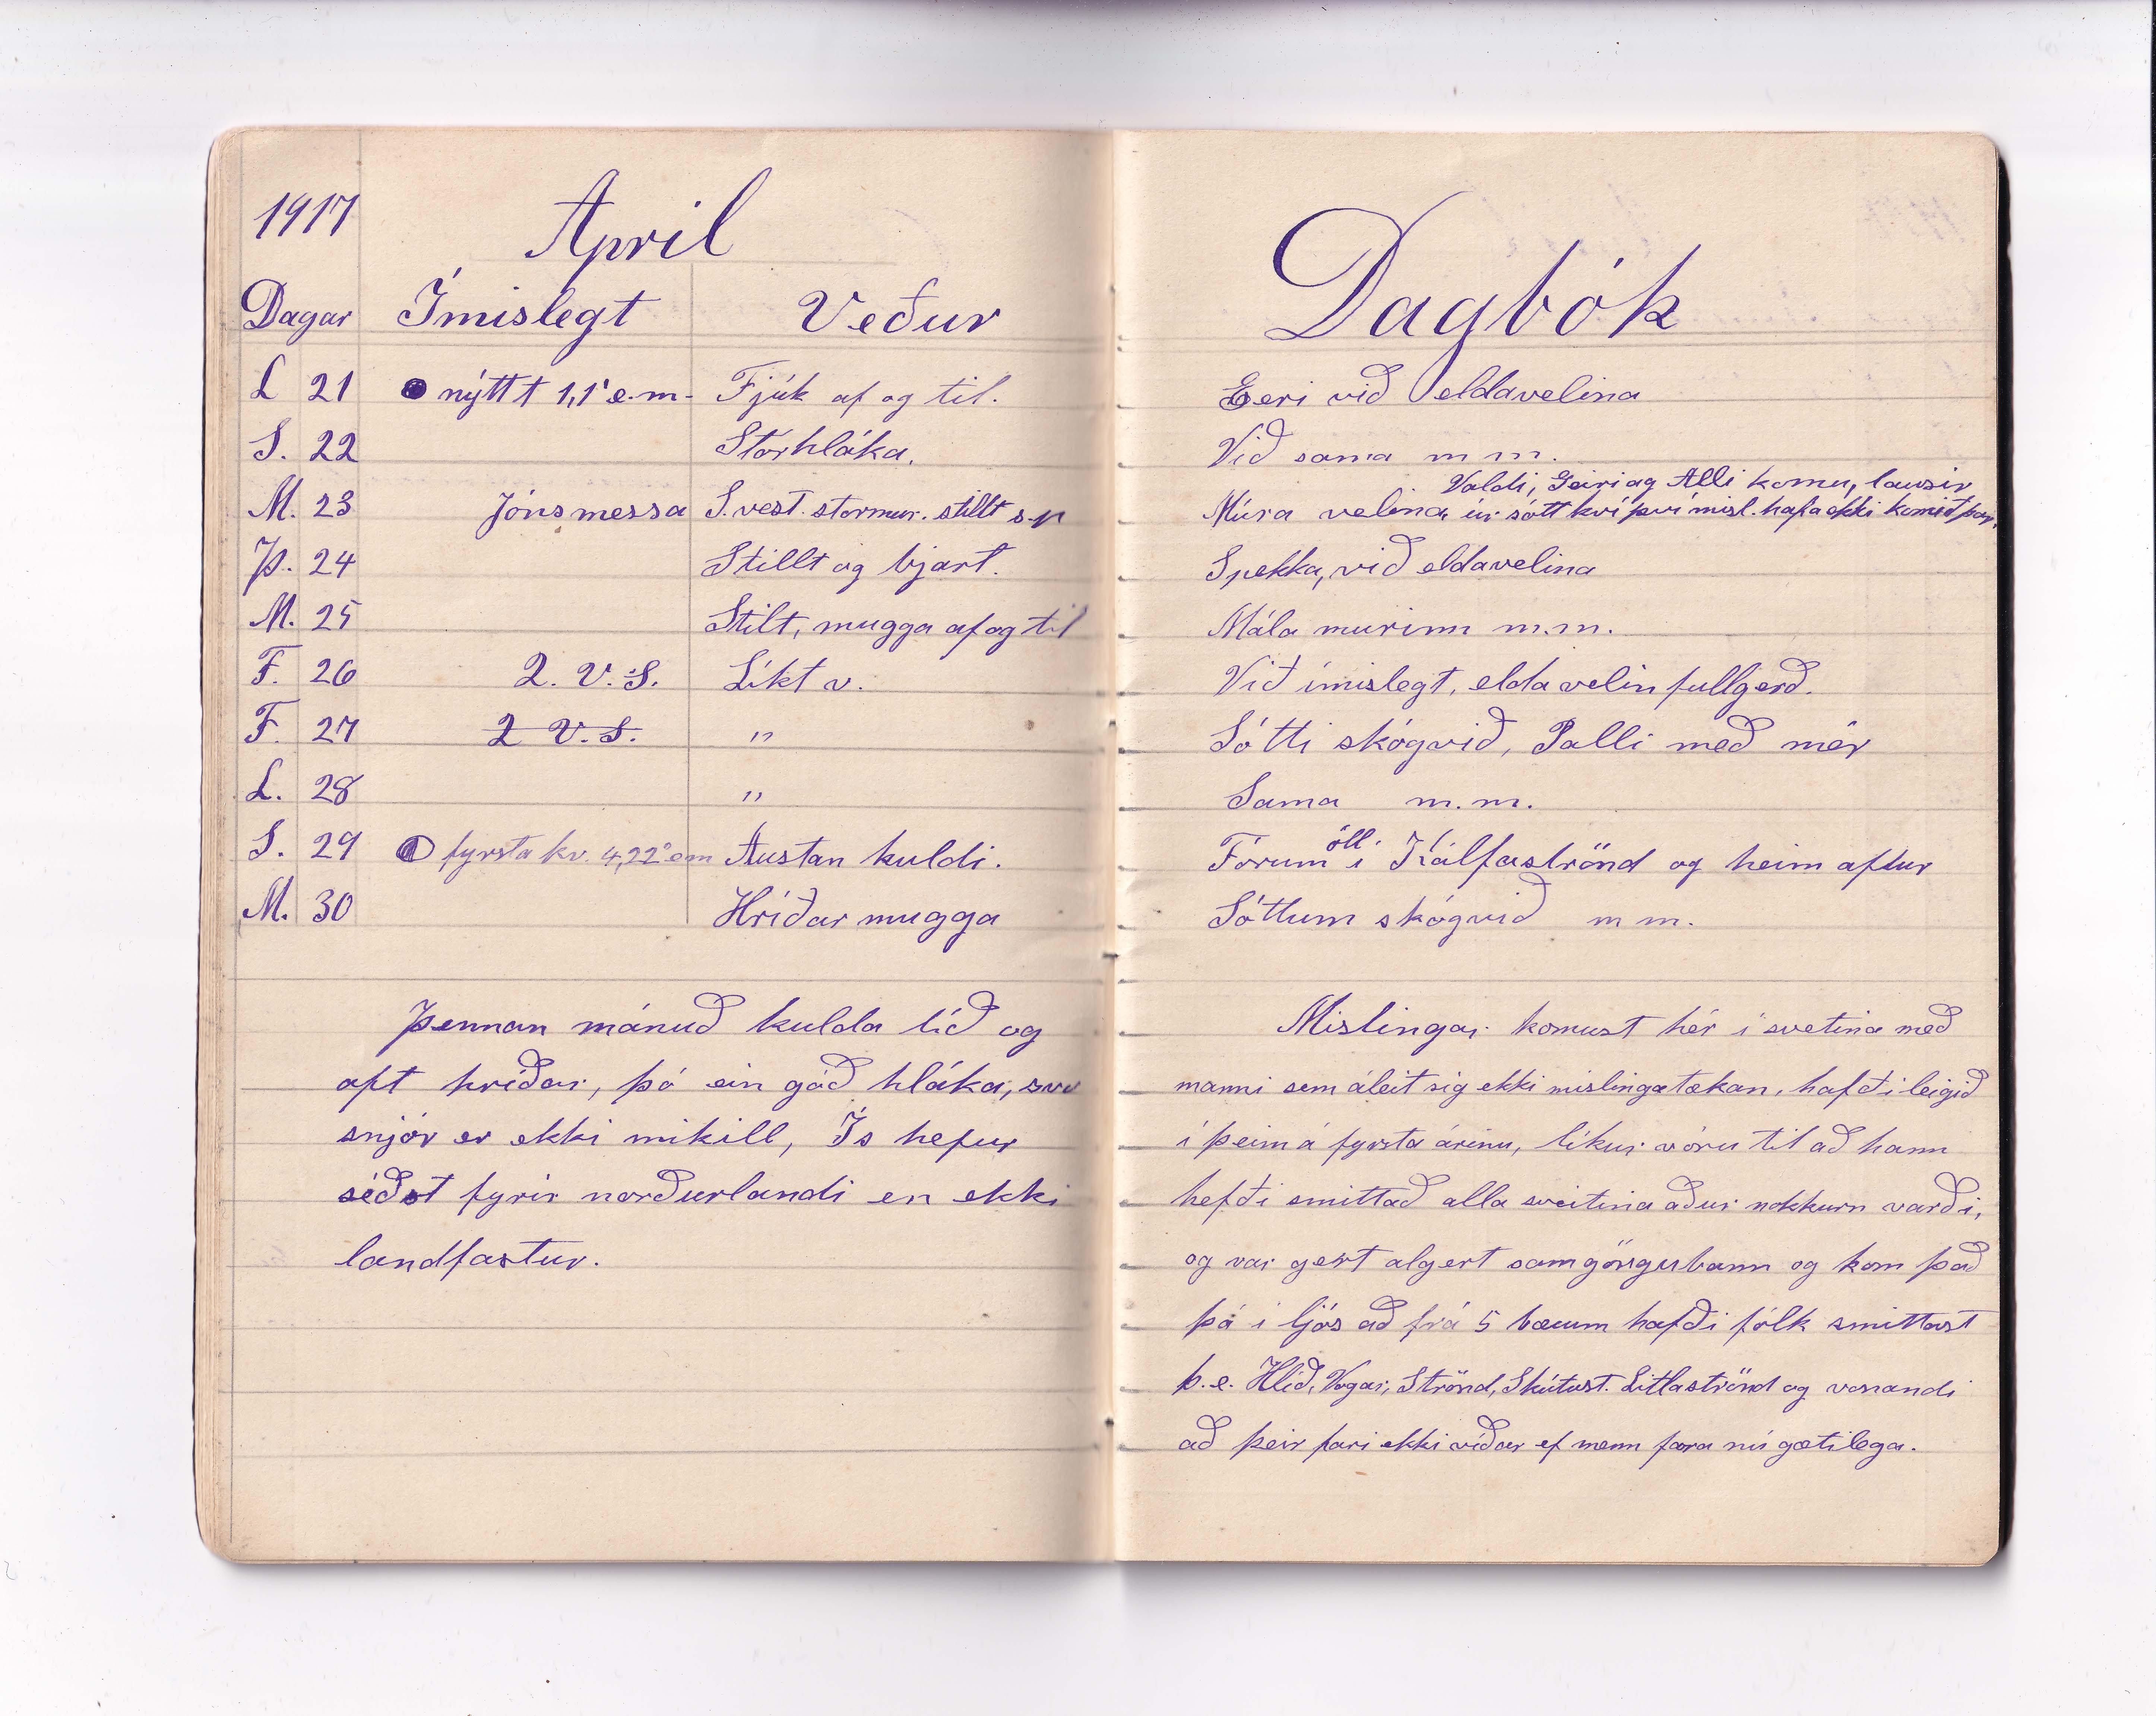 1917 April
Dagar Ímislegt Veður
L 21 nýtt t 1,1' e.m- Fjúk af og til.
S. 22 Stórhláka.
M. 23 Jónsmessa S.vest. stormur. stillt s.p
Þ. 24 Stillt og bjart.
M. 25 Stilt, mugga af og til
F. 26 2. V. S. Líkt v.
F. 27 2 V. S. "
L. 28 "
S. 29 fyrsta kv. 4,22' em Austan kuldi.
M. 30 Hríðar mugga
Þennan mánuð kulda tíð og
oft hríðar, þó ein góð hláka, svo
snjór er ekki mikill, Ís hefur
séðst fyrir norðurlandi en ekki
landfastur.
Dagbók
Eeri við eldavelina
Við sama m m.
Valdi, Geiri og Alli komu, lausir
Múra velina úr sótt kví því misl. hafa ekki komið þar.
Spekka, við eldavelina
Mála murinn m.m.
Við ímislegt, eldavelin fullgerð.
Sótti skógvið, Palli með mér
Sama m.m.
Fórum öll í Kálfaströnd og heim aftur
Sóttum skógvið m m.
Mislingar komust hér í svetina með
manni sem áleit sig ekki mislingatækan, hafði leigið
í þeim á fyrsta árinu, líkur vóru til að hann
hefði smittað alla sveitina aður nokkurn varði,
og var gert algert samgöngubann og kom það
þá í ljós að frá 5 bæum hafði fólk smittast
þ.e. Hlíð, Vogar, Strönd, Skútust. Litlaströnd og vonandi
að þeir fari ekki víðar ef menn fara nú gætilega.